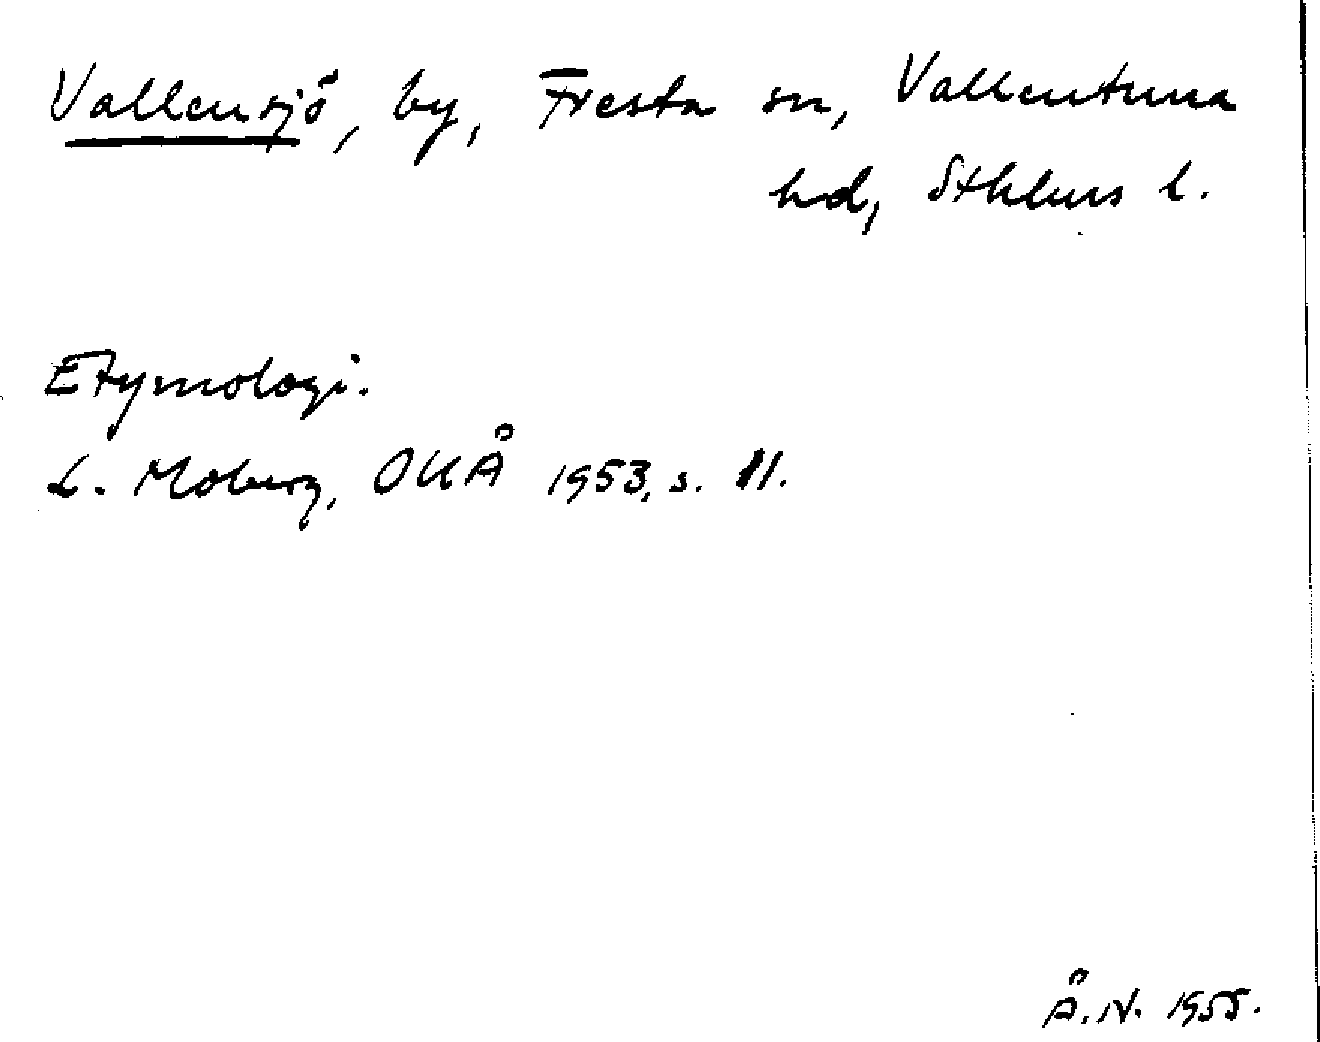 Vallensjö, by, Fresta sn, Vallentuna
hd, Sthlms l.
Etymologi.
L. Moberg, OUÅ 1953, s. 11.
Å.N. 1955.